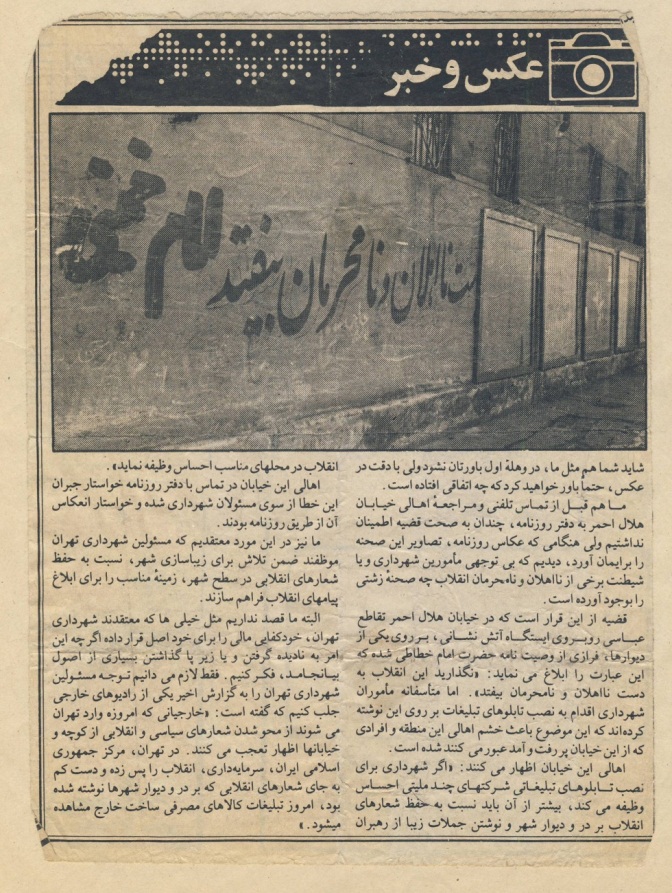 عکس و خبر
ست نااهلان و نامحرمان بیفتد
امام خمینی
شاید شما هم مثل ما، در وهلهٔ اول باورتان نشود ولی با دقت در
عکس، حتماً باور خواهید کرد که چه اتفاقی افتاده است.
ما هم قبل از تماس تلفنی و مراجعهٔ اهالی خیابان
هلال احمر به دفتر روزنامه، چندان به صحت قضیه اطمینان
نداشتیم ولی هنگامی که عکاس روزنامه، تصاویر این صحنه
را برایمان آورد، دیدیم که بی توجهی مأمورین شهرداری و یا
شیطنت برخی از نااهلان و نامحرمان انقلاب چه صحنهٔ زشتی
را بوجود آورده است.
قضیه از این قرار است که در خیابان هلال احمر تقاطع
عباسی روبروی ایستگاه آتش نشانی، بر روی یکی از
دیوارها، فرازی از وصیت نامه حضرت امام خطاطی شده که
این عبارت را ابلاغ می نماید: «نگذارید این انقلاب به
دست نااهلان و نامحرمان بیفتد». اما متأسفانه مأموران
شهرداری اقدام به نصب تابلوهای تبلیغاتی بر روی این نوشته
کرده‌اند که این موضوع باعث خشم اهالی این منطقه و افرادی
که از این خیابان پر رفت و آمد عبور می کنند شده است.
اهالی این خیابان اظهار می کنند: «اگر شهرداری برای
نصب تابلوهای تبلیغاتی شرکتهای چند ملیتی احساس
وظیفه می کند، بیشتر از آن باید نسبت به حفظ شعارهای
انقلاب بر در و دیوار شهر و نوشتن جملات زیبا از رهبران
انقلاب در محلهای مناسب احساس وظیفه نماید».
اهالی این خیابان در تماس با دفتر روزنامه خواستار جبران
این خطا از سوی مسئولان شهرداری شده و خواستار انعکاس
آن از طریق روزنامه بودند.
ما نیز در این مورد معتقدیم که مسئولین شهرداری تهران
موظفند ضمن تلاش برای زیباسازی شهر، نسبت به حفظ
شعارهای انقلابی در سطح شهر، زمینهٔ مناسب را برای ابلاغ
پیامهای انقلاب فراهم سازند.
البته ما قصد نداریم مثل خیلی ها که معتقدند شهرداری
تهران، خودکفایی مالی را برای خود اصل قرار داده اگر چه این
امر به نادیده گرفتن و یا زیر پا گذاشتن بسیاری از اصول
بیانجامد، فکر کنیم. فقط لازم می دانیم توجه مسئولین
شهرداری تهران را به گزارش اخیر یکی از رادیوهای خارجی
جلب کنیم که گفته است: «خارجیانی که امروزه وارد تهران
می شوند از محو شدن شعارهای سیاسی و انقلابی از کوچه و
خیابانها اظهار تعجب می کنند. در تهران، مرکز جمهوری
اسلامی ایران، سرمایه‌داری، انقلاب را پس زده و دست کم
به جای شعارهای انقلابی که بر در و دیوار شهرها نوشته شده
بود، امروز تبلیغات کالاهای مصرفی ساخت خارج مشاهده
میشود.»